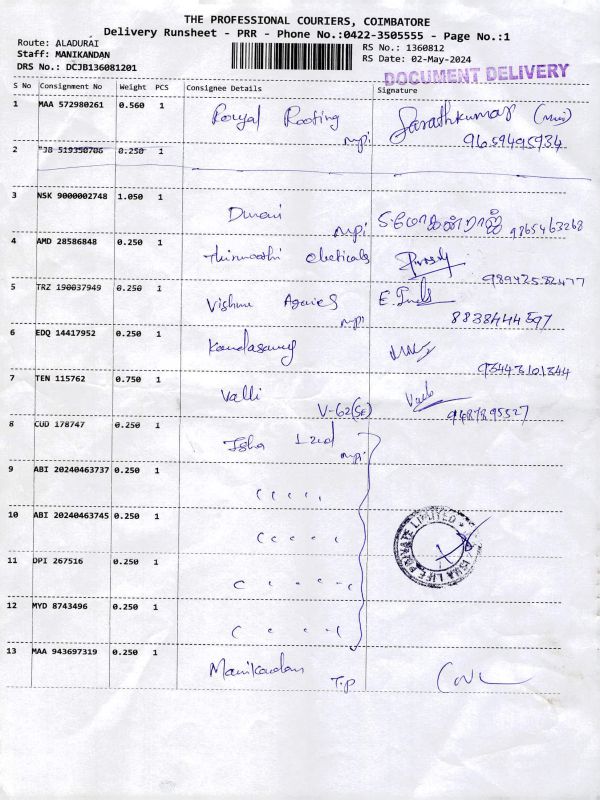 THE PROFESSIONAL COURIERS, COIMBATORE
Delivery Runsheet - PRR - Phone No.:0422-3505555 - Page No.:1
Route: ALADURAI
Staff: MANIKANDAN
DRS No.: DCJB136081201
RS No.: 1360812
RS Date: 02-May-2024
DOCUMENT DELIVERY
S No Consignment No Weight PCS Consignee Details Signature
1 MAA 572980261 0.560 1 Royal Roofing mpi Sarathkumar
9659495934
2 519350706 0.250 1
3 NSK 9000002748 1.050 1 mpi 9865463268
4 AMD 28586848 0.250 1 electricals
5 TRZ 190037949 0.250 1 Vishnu mpi
8838444597
6 EDQ 14417952 0.250 1 Kandasamy
7 TEN 115762 0.750 1 Valli V-62(SE)
9487895527
8 CUD 178747 0.250 1 Isha mpi
9 ABI 20240463737 0.250 1
10 ABI 20240463745 0.250 1
ISHA LIFE PRIVATE LIMITED
11 DPI 267516 0.250 1
12 MYD 8743496 0.250 1
13 MAA 943697319 0.250 1 Manikandan T.P